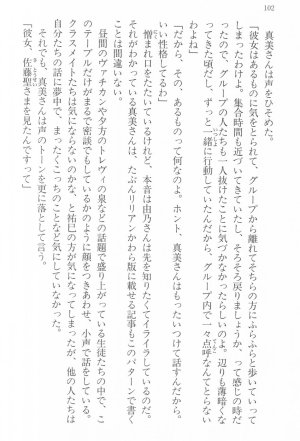 102
真美さんは声をひそめた。
「彼女はあるものに気をとられて、グループから離れてそちらの方にふらふらと歩いていって
しまったわけよ。集合時間も近づいてきていたし、そろそろ戻りましょうか、って感じの時だ
ったので、グループの人たちも一人抜けたことに気づかなかったらしいのよ。辺りも薄暗くな
ってきた頃だし、ずっと一緒に行動していたんだから、グループ内で一々点呼なんてとらない
「だから、その、あるものって何なのよ。ホント、真美さんはもったいつけて話すんだから。
いい性格してるわ」
憎まれ口をたたいているけれど、本音は由乃さんは先を知りたくてイライラしているのだ。
ことは間違いない。
真美さんは、たぶんリリアンかわら版に載せる記事もこのパターンで書く
昼間のヴァチカンや夕方のトレヴィの泉などの話題で盛り上がっている生徒たちの中で、こ
のテーブルだけがまるで密談でもしているかのように顔をつきあわせ、小声で話をしている。
クラスメイトたちは気にならないのかな、と祐巳の方が気になってしまったが、他の人たちは
自分たちの話に夢中で、まったくこっちのことなど気にしていなかった。
それでも、真美さんは声のトーンを更に落として言う。
「彼女、佐藤聖さまを見たんですって」